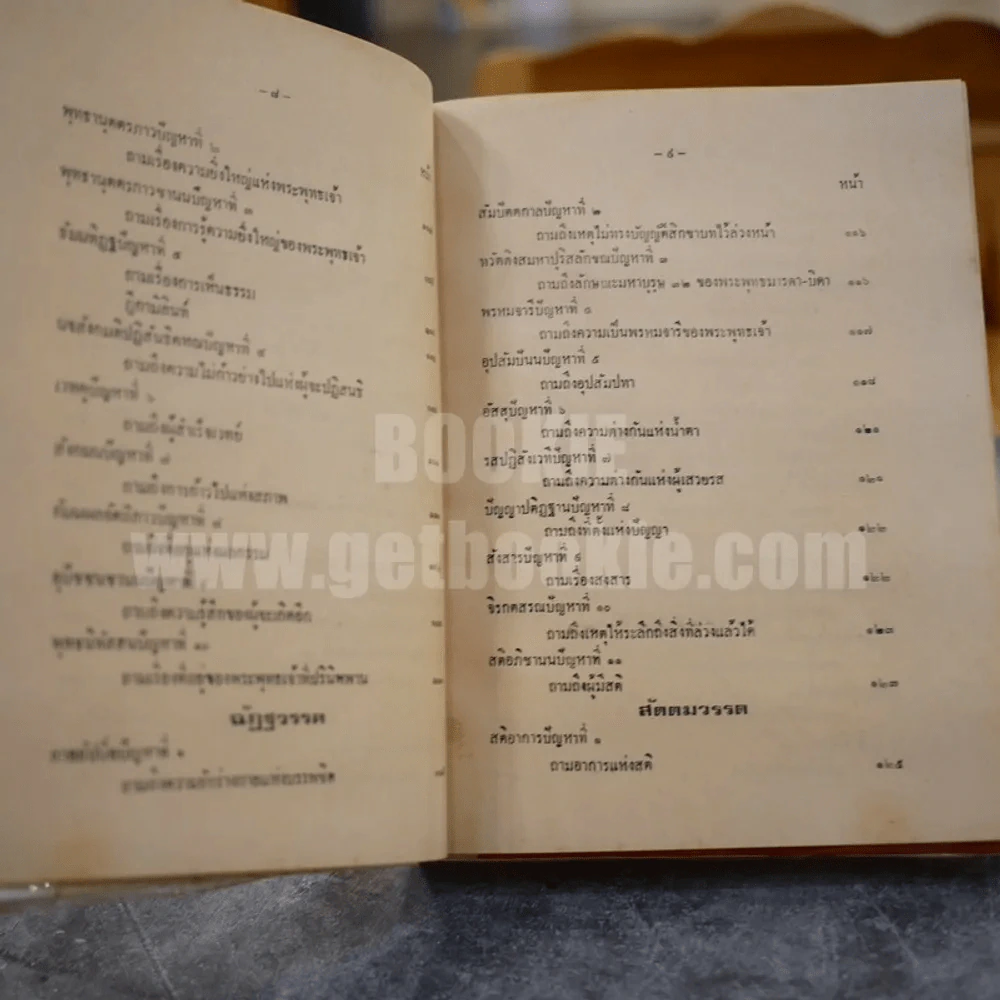 - ๘ -
พุทธานุตตรภาวปัญหาที่ ๒
ถามเรื่องความยิ่งใหญ่แห่งพระพุทธเจ้า
พุทธานุตตรภาวชานนปัญหาที่ ๓
ถามเรื่องการรู้ความยิ่งใหญ่ของพระพุทธเจ้า
ธัมมทิฏฐปัญหาที่ ๕
ถามเรื่องการเห็นธรรม
ฎีกามิลินท์
ถามถึงความไม่ก้าวย่างไปแห่งผู้จะปฏิสนธิ
ปัญหาที่ ๖
ถามถึงผู้สำเร็จเวทย์
ปัญหาที่ ๗
ถามถึงการก้าวไปแห่งสภาพ
ถามถึงความรู้สึกของผู้จะเกิดอีก
ปัญหาที่ ๑๐
ถามเรื่องที่อยู่ของพระพุทธเจ้าที่ปรินิพพาน
ฉัฏฐวรรค
ปัญหาที่ ๑
- ๙ -
หน้า
สัมปัตตกาลปัญหาที่ ๒
ถามถึงเหตุไม่ทรงบัญญัติสิกขาบทไว้ล่วงหน้า ๑๑๖
ทวัตติงสมหาปุริสลักขณปัญหาที่ ๓
ถามถึงลักษณะมหาบุรุษ ๓๒ ของพระพุทธมารดา-บิดา ๑๑๖
พรหมจารีปัญหาที่ ๔
ถามถึงความเป็นพรหมจารีของพระพุทธเจ้า ๑๑๗
อุปสัมปันนปัญหาที่ ๕
ถามถึงอุปสัมปทา ๑๑๘
อัสสุปัญหาที่ ๖
ถามถึงความต่างกันแห่งน้ำตา ๑๒๑
รสปฏิสังเวทีปัญหาที่ ๗
ถามถึงความต่างกันแห่งผู้เสวยรส ๑๒๑
ปัญญาปติฏฐานปัญหาที่ ๘
ถามถึงที่ตั้งแห่งปัญญา ๑๒๒
สังสารปัญหาที่ ๙
ถามเรื่องสงสาร ๑๒๒
จิรกตสรณปัญหาที่ ๑๐
ถามถึงเหตุให้ระลึกถึงสิ่งที่ล่วงแล้วได้ ๑๒๓
สติอภิชานนปัญหาที่ ๑๑
ถามถึงผู้มีสติ ๑๒๓
สัตตมวรรค
สติอาการปัญหาที่ ๑
ถามอาการแห่งสติ ๑๒๕
BOOKIE
www.getbookie.com